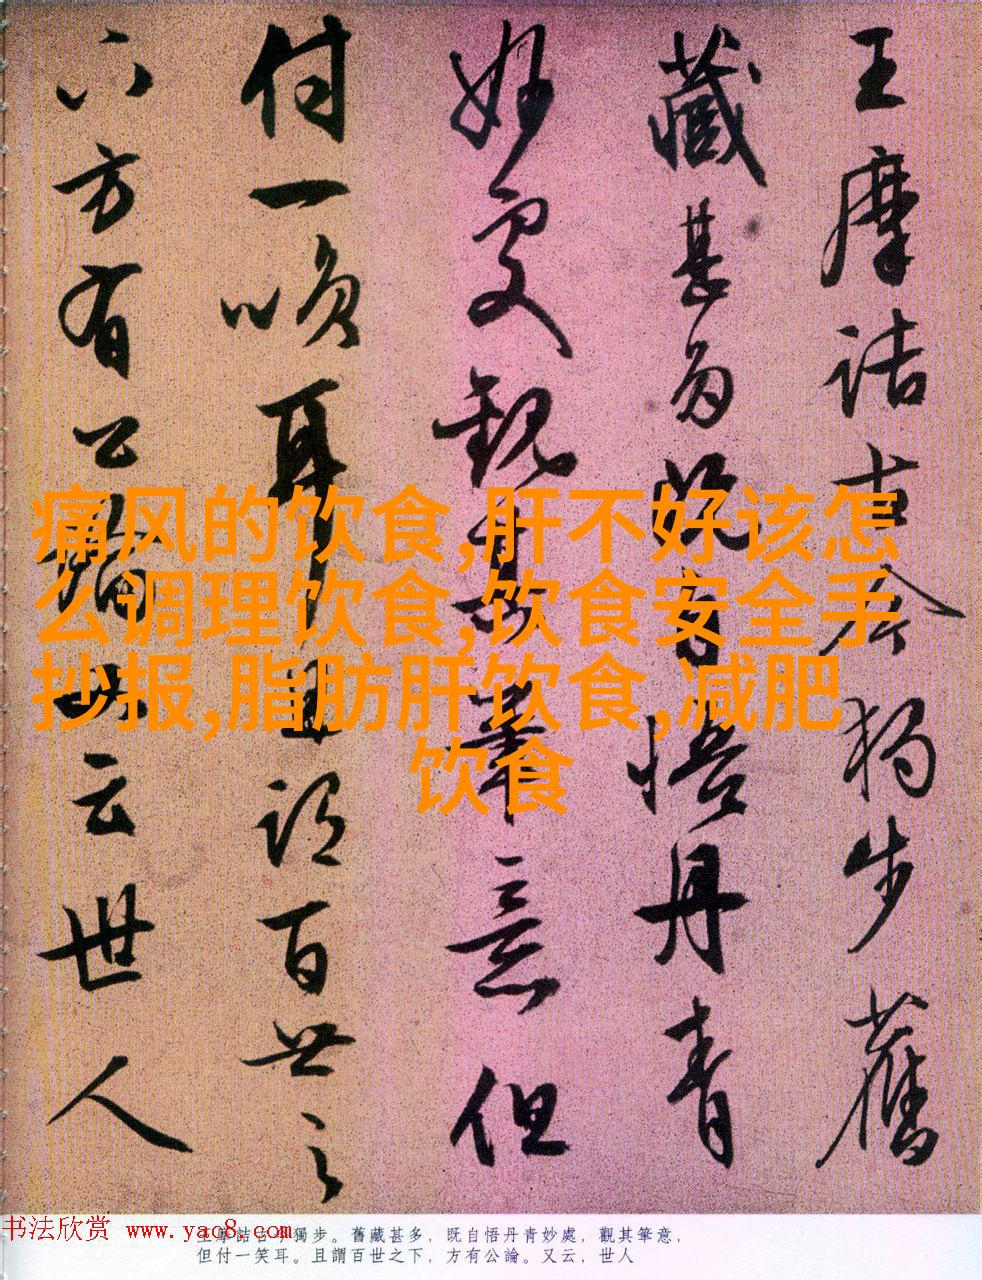 王摩詰古今獨步舊
藏甚多既自悟丹青
妙處觀其筆意但
付一咲耳且謂百世之
下方有公論又云世人
痛风的饮食,肝不好该怎
么调理饮食,饮食安全手
抄报,脂肪肝饮食,减肥
饮食
书法欣赏 www.yac8.com
王摩詰古今獨步。舊藏甚多，既自悟丹青妙處，觀其筆意，
但付一笑耳。且謂百世之下，方有公論。又云，世人